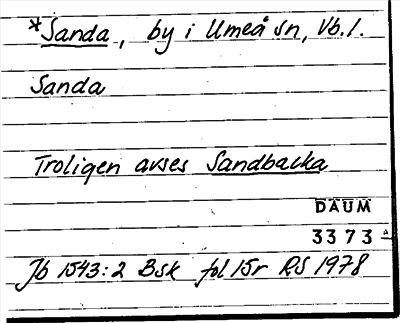 *Sanda, by i Umeå sn, Vb. l.
Sanda
Troligen avses Sandbacka
DAUM
3373
Jb 1543:2 Bsk fol 15r RS 1978